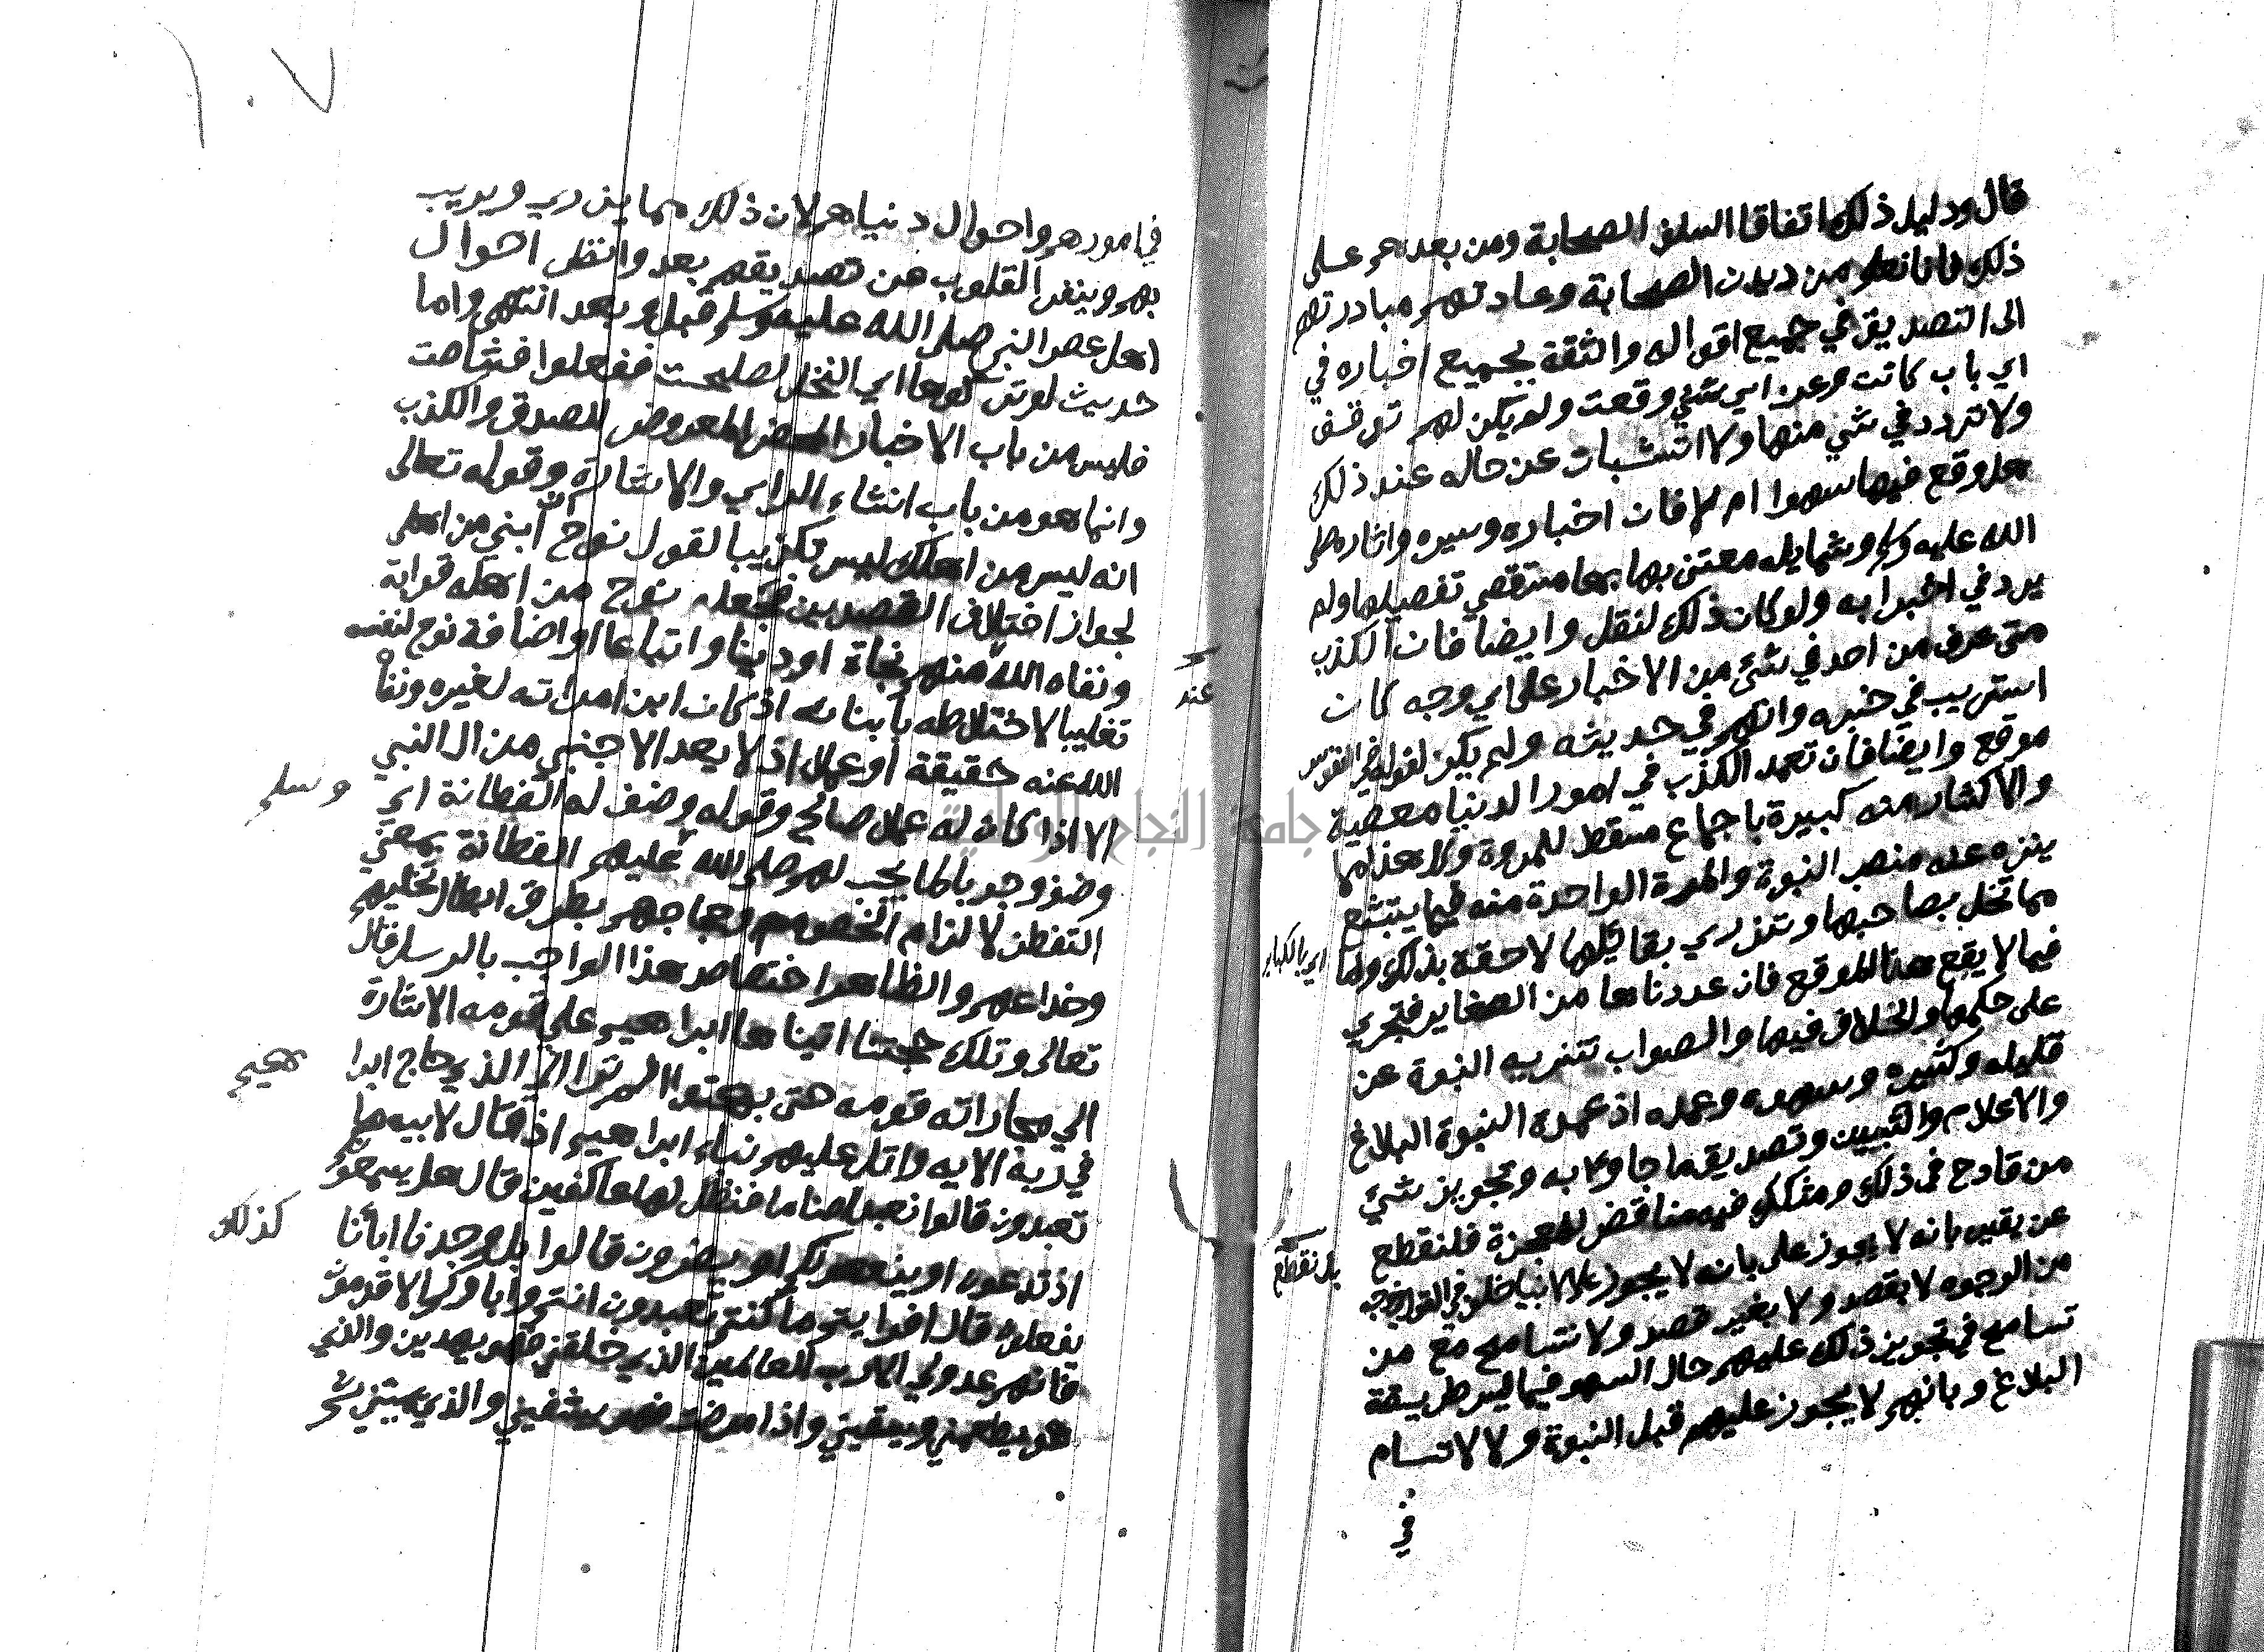 قال ودليل ذلك اتفاق السلف الصحابة ومن بعدهم على
ذلك فانا نعلم من ديدن الصحابة وعادتهم مبادرتهم
الى التصديق في جميع اقواله والثقة بجميع اخباره في
اي باب كانت وعن اي شئ وقعت ولم يكن لهم توقف
ولا تردد في شي منها ولا اتثبات عن حاله عند ذلك
هل وقع فيها سهوا ام لا فان اخباره وسيره واثاره صلى
الله عليه وسلم وشمايله معتنى بها منتقصي تفصيلها ولم
يرد في اخبرابه ولو كان ذلك لنقل وايضا فان الكذب
متى عرف من احد في شئ من الاخبار على اي وجه كان
استريب في خبره واتهم في حديثه ولم يكن لقوله في النفوس
موقع وايضا فان تعمد الكذب في امور الدنيا معصية
والاكثار منه كبيرة باجماع مسقط للمروة وكل هذا مما
ينزه عنه منصب النبوة والمرة الواحدة منه فيما يبشع
مما تخل بصاحبها وتزري بقائلها لاحقة بذلك واما
اي بالكباير
فيما لا يقع هذا الموقع فان عددناها من الصغاير فتجري
على حكمها والخلاف فيها والصواب تنزيه النبوة عن
قليله وكثيره وسهوه وعمده اذ عمدة النبوة البلاغ
والاعلام والتبيين وتصديق ما جاوا به وتجويز شئ
من قادح في ذلك ومشكك فيه مناقض للمعجزة فلنقطع
بل نقطع
عن يقين بانه لا يجوز على بانه لا يجوز على الانبيا خلف في القول بوجه
من الوجوه لا بقصد ولا بغير قصد ولا نتسامح مع من
تسامح في تجويز ذلك عليهم حال السهو فيما ليس طريقة
البلاغ وبانهم لا يجوز عليهم قبل النبوة ولا الاتسام
في
١٠٧
في امورهم واحوال دنياهم لان ذلك مما يزري ويريب
بهم وينفر القلوب عن تصديقهم بعد وانظر احوال
اهل عصر النبي صلى الله عليه وسلم قبل وبعد انتهى واما
حديث لو تركوها اي النخل لصلحت ففعلوا فشاصت
فليس من باب الاخبار المحض المعروض للصدق والكذب
وانما هو من باب انشاء الراي والاشارة وقوله تعالى
انه ليس من اهلك ليس تكذيبا لقول نوح ان ابني من اهلى
لجواز اختلاف القصدين فجعله نوح من اهله قرابة
ونفاه الله منهم نجاة او دينا واتباعا او اضافة نوح لنفسه
تغليبا لاختلاطه بابنائه اذ كان ابن امراته لغيره ونفاه
عند
الله عنه حقيقة او عملا اذ لا يعد الاجنبي من ال النبي
الا اذا كان له عمل صالح وقوله وضف له الفطانة اي
وضف وجوبا لما يجب لهم صلى الله عليهم وسلم الفطانة بمعنى
التفطن لالزام الخصوم وحجاجهم بطرق ابطال تخيلهم
وخداعهم والظاهر اختصاص هذا الواجب بالرسل قال
تعالى وتلك حجتنا اتيناها ابراهيم على قومه الاشارة
الي مجاراته قومه حتى بهتوا الم تر الي الذي حاج ابراهيم
في ربه الايه واتل عليهم نباء ابراهيم اذ قال لابيه ما
تعبدون قالوا نعبد اصناما فنظل لها عاكفين قال هل يسمعونكم
اذ تدعون او ينفعونكم او يضرون قالوا بل وجدنا اباءنا كذلك
يفعلون قال افرايتم ما كنتم تعبدون انتم واباوكم الاقدمون
فانهم عدو لي الا رب العالمين الذي خلقني فهو يهدين والذي
هو يطعمني ويسقيني واذا مرضت فهو يشفيني والذي يميتني ثم
جامعة النجاح الوطنية